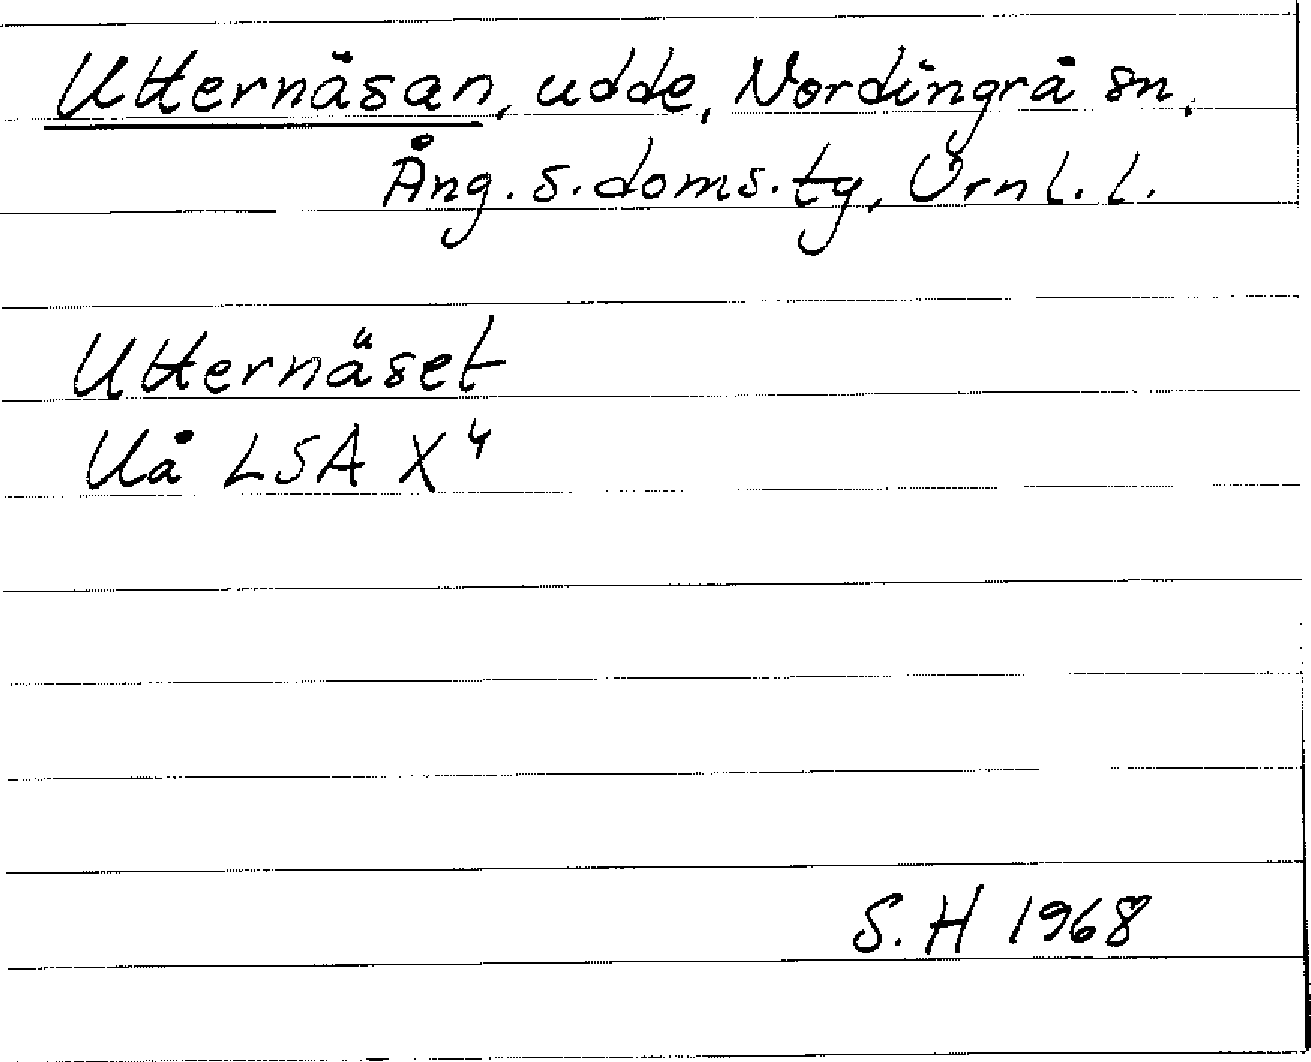 Utternäsan, udde, Nordingrå sn,
Ång. s. doms. tg, Örnl. l.
Utternäset
Uå LSA X⁴
S. H 1968